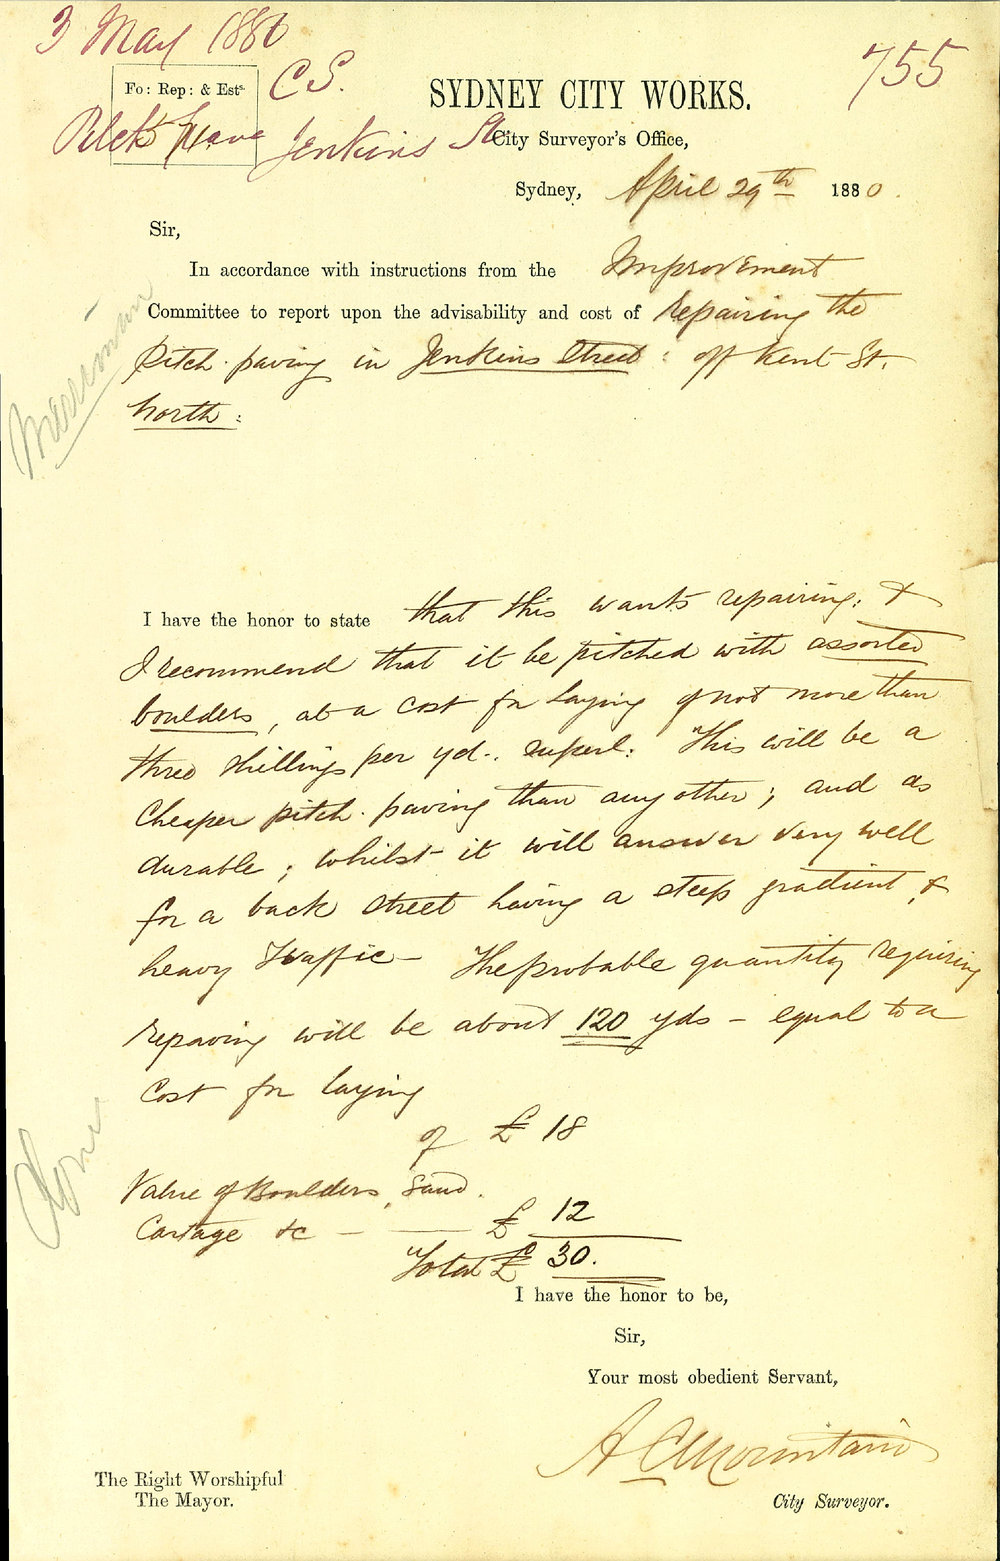 3 May 1880
755
Fo: Rep: & Ests.
C S.
SYDNEY CITY WORKS.
Jenkins St
City Surveyor's Office,
Sydney, April 29th 1880.
Sir,
In accordance with instructions from the Improvement
Committee to report upon the advisability and cost of repairing the
pitch paving in Jenkins Street: off Kent St.
North:
Merriman
I have the honor to state that this wants repairing: &
I recommend that it be pitched with assorted
boulders, at a cost for laying of not more than
three shillings per yd. superl: This will be a
cheaper pitch paving than any other; and as
durable; whilst it will answer very well
for a back street having a steep gradient, &
heavy traffic - The probable quantity requiring
repaving will be about 120 yds - equal to a
cost for laying
of £ 18
Value of Boulders, sand.
Cartage &c - £ 12
Total £ 30.
I have the honor to be,
Sir,
Your most obedient Servant,
A C Mountain
The Right Worshipful
The Mayor.
City Surveyor.